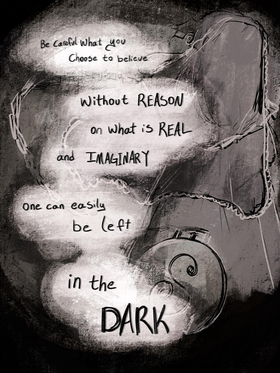 Be Careful What you
Choose to believe
Without REASON
on what is REAL
and IMAGINARY
One can easily
be left
in the
DARK